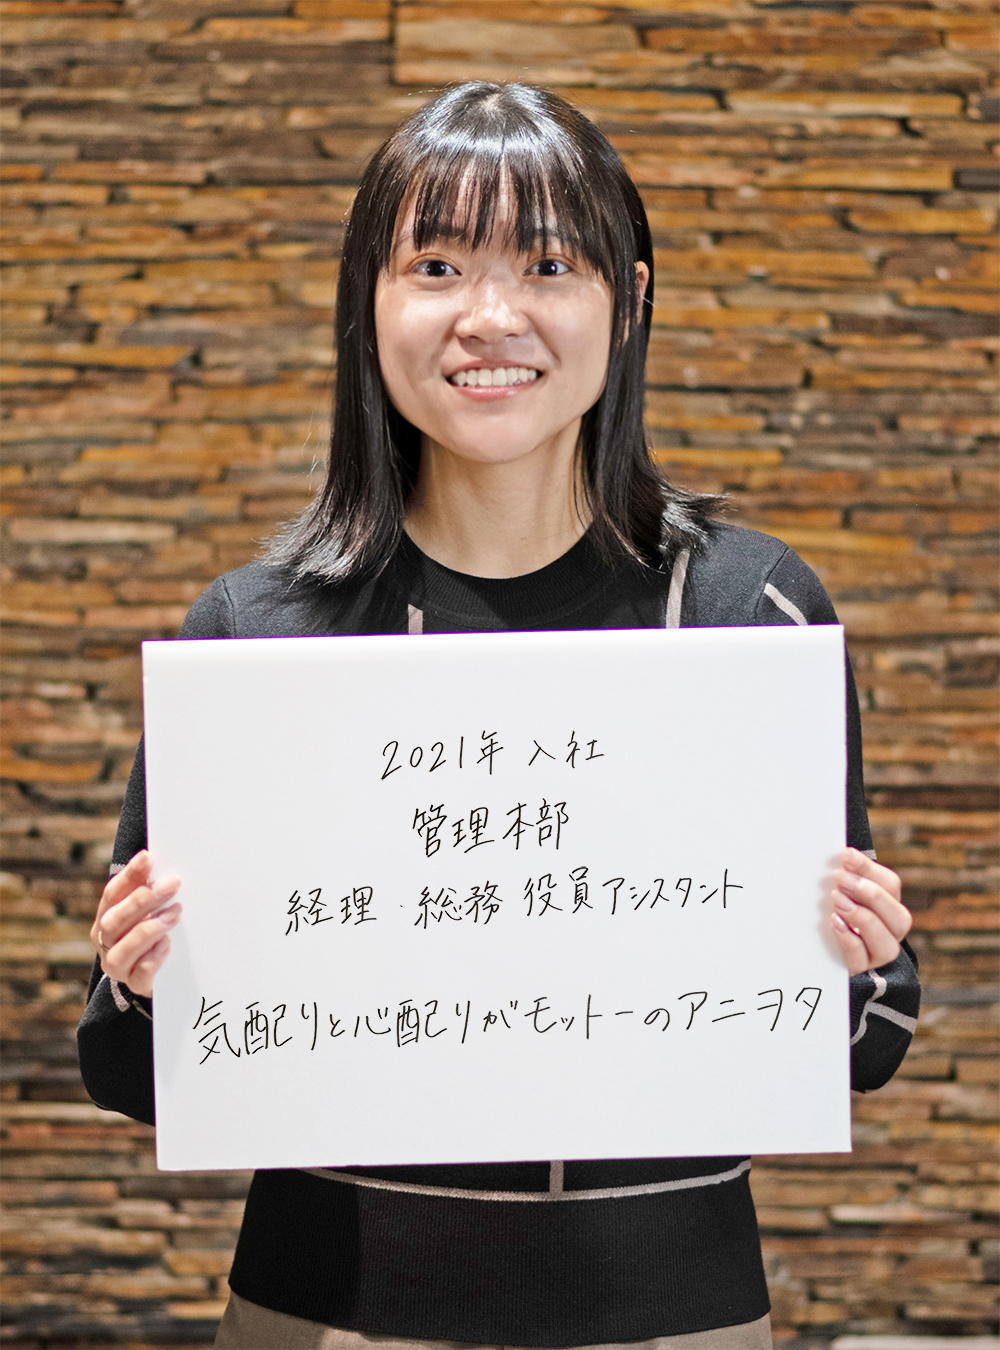 2021年 入社
管理本部
経理・総務 役員アシスタント
気配りと心配りがモットーのアニヲタ